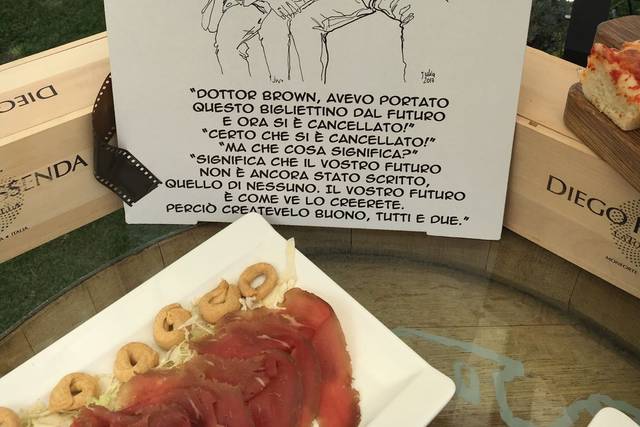 "DOTTOR BROWN, AVEVO PORTATO
QUESTO BIGLIETTINO DAL FUTURO
E ORA SI È CANCELLATO!"
"CERTO CHE SI È CANCELLATO!"
"MA CHE COSA SIGNIFICA?"
"SIGNIFICA CHE IL VOSTRO FUTURO
NON È ANCORA STATO SCRITTO,
QUELLO DI NESSUNO. IL VOSTRO FUTURO
È COME VE LO CREERETE.
PERCIÒ CREATEVELO BUONO, TUTTI E DUE."
DIEGO
ENDA
ITALIA
DIEGO
MONFORTE